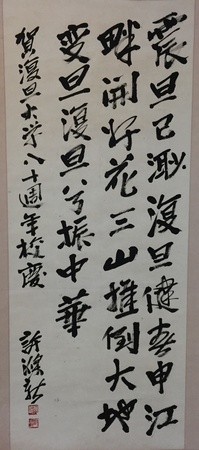 震旦已渺復旦健春申江
畔開好花三山推倒大地
变旦復旦兮振中華
賀復旦大学八十週年校慶
許滌新